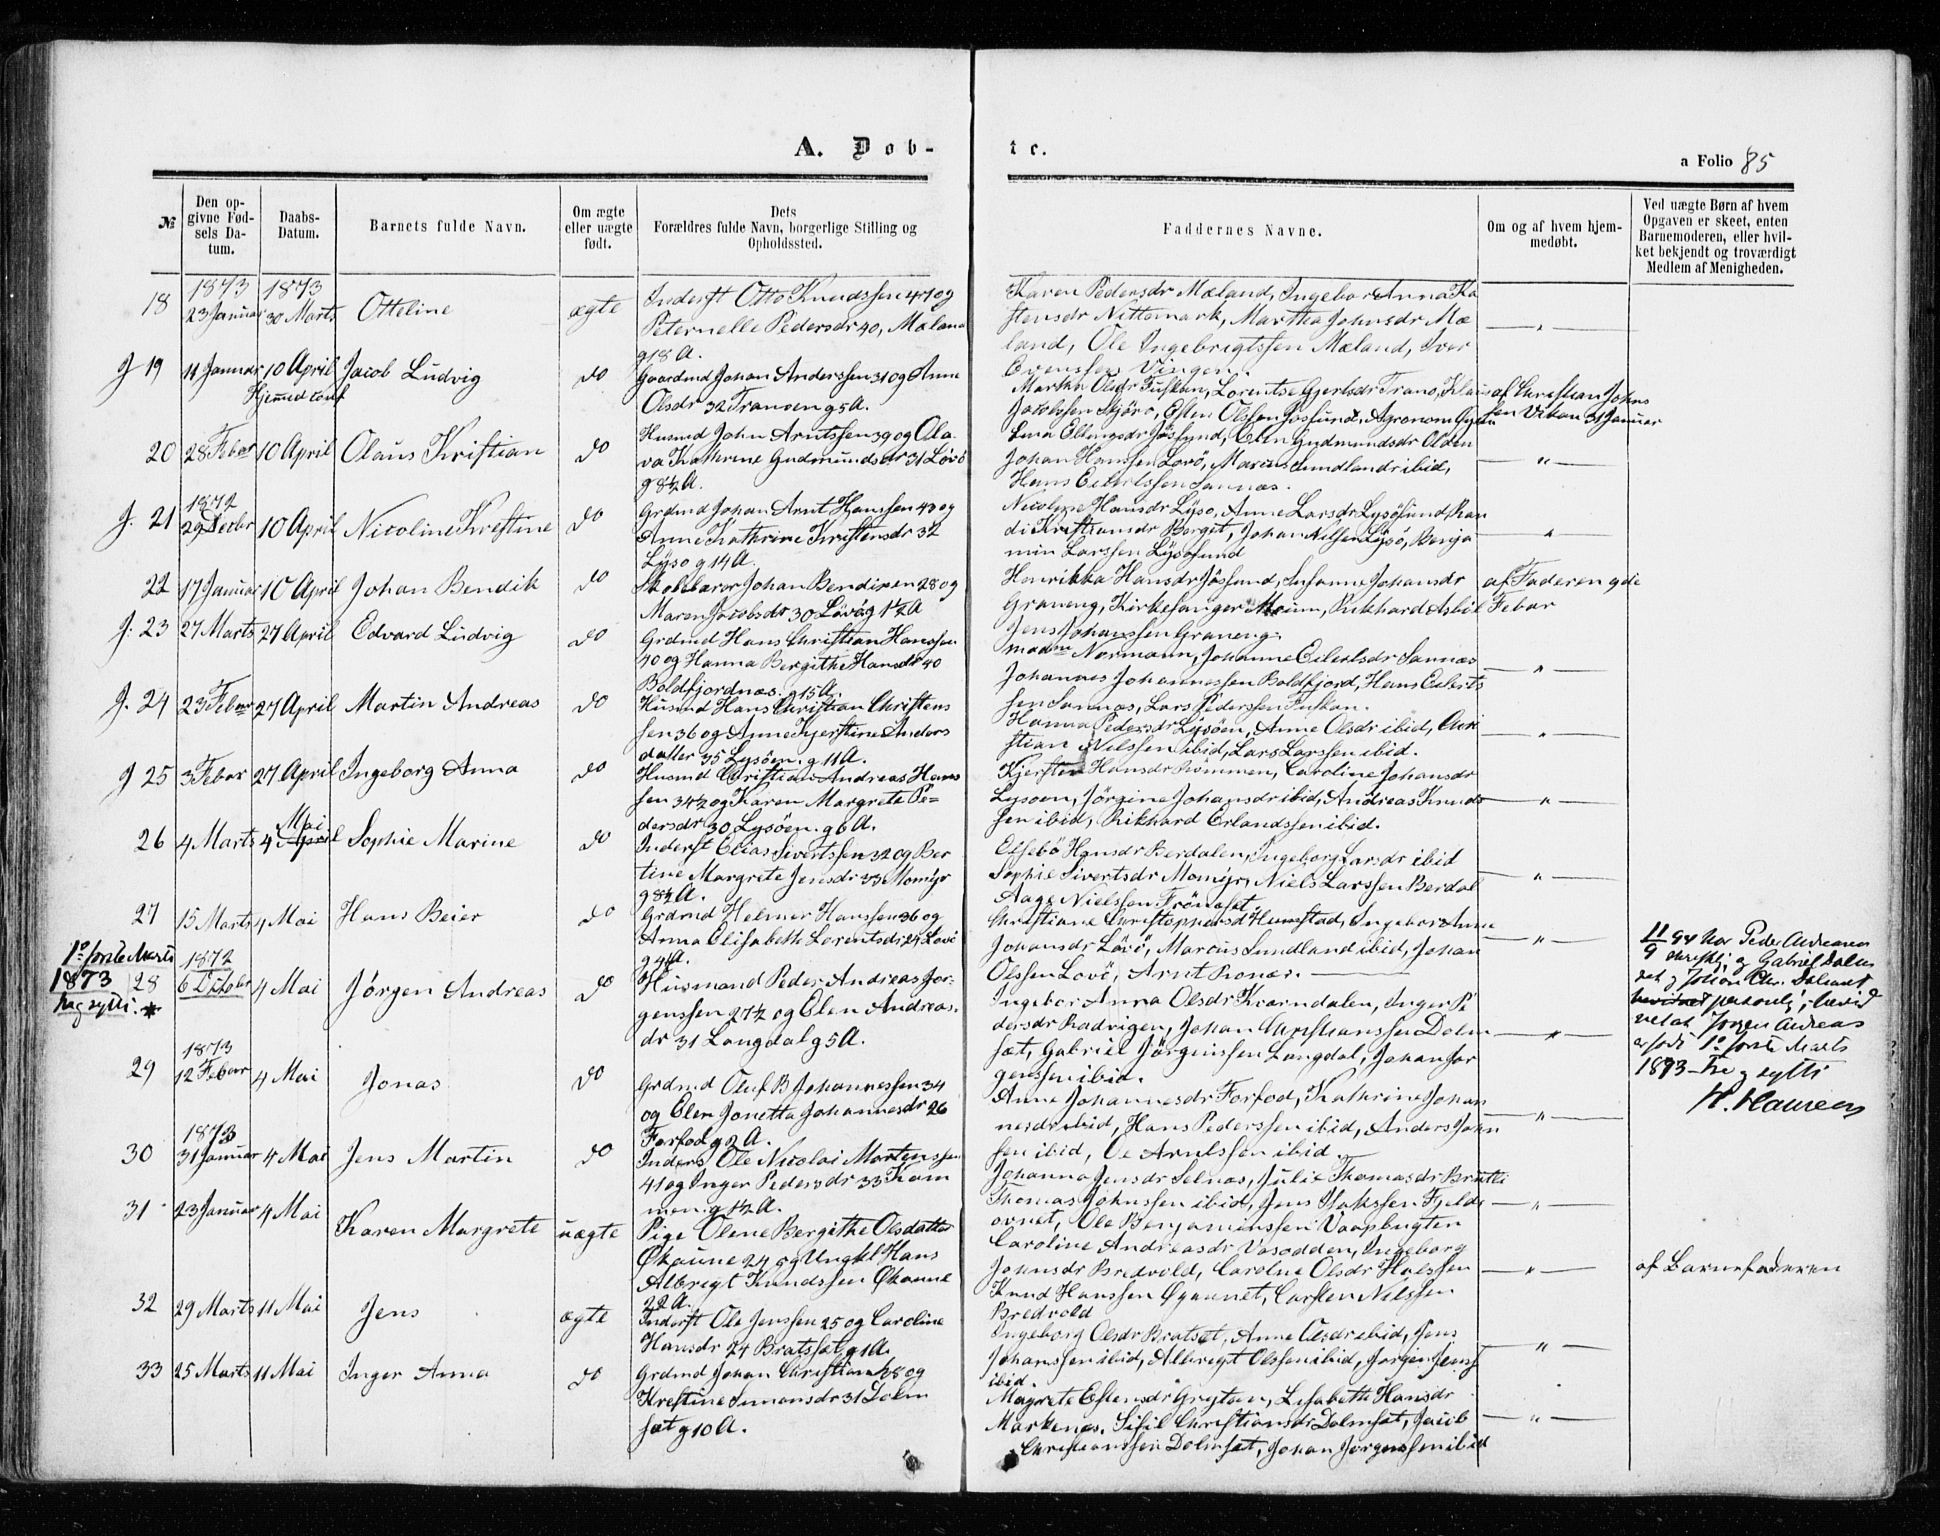 A. Dob-
te.
a Folio 85
№
Den opgivne Fødsels Datum.
Daabs-Datum.
Barnets fulde Navn.
Om ægte eller uægte født.
Dets Forældres fulde Navn, borgerlige Stilling og Opholdssted.
Faddernes Navne.
Om og af hvem hjemmedøbt.
Ved uægte Børn af hvem Opgaven er skeet, enten Barnemoderen, eller hvilket bekjendt og troværdigt Medlem af Menigheden.
18
1873
23 Januar
1873
30 Marts
Otteline
ægte
Inderst Otto Knudssen 47 og
Peternelle Pedersdr 40, Mæland
g 18 A.
Karen Pedersdr Mæland, Ingebor Anna Ka
stensdr Nittamark, Martha Johnsdr Mæ
land, Ole Ingebrigtssen Mæland, Iver
Evenssen Vingen.
J 19
11 Januar
10 April
Hjemmed
Jacob Ludvig
do
Gaardmd Johan Anderssen 31 og Anne
Olsdr 32 Tranen g 5 A.
Martha Olsdr Fuskan, Lorentse Gjertsdr Trano, Klaus
Jakobssen Skjøro, Esten Olssen Jøssund, Agronom
af Christian Johns
sen Vikan 31 Januar
20
28 Febar
10 April
Olaus Kristian
do
Husmd John Arntssen 39 og Ola
va Kathrine Gudmundsdr 31 Løvø
g 8½ A.
Lina Ellingsdr Jøssund, Elen Gudmundsdr Olden
Johan Hanssen Lovø, Marcus Sundland ibid,
Hans Eilertssen Sannæs.
J. 21
1872
29 Decbr
10 April
Nicoline Krestine
do
Grdmd Johan Arnt Hanssen 43 og
Anne Kathrine Kristensdr 32
Lysø g 14 A.
Nicoline Hansdr Lysø, Anne Larsdr Lysøsund, Ran
di Kristiansdr Borget, Johan Nilssen Lysø, Benja
min Larssen Lysøsund
22
17 Januar
10 April
Johan Bendik
do
Skolelærer Johan Bendixen 28 og
Maren Jacobsdr 30 Løvøg 1½ A
Henrikka Hansdr Jøssund, Susanne Johansdr
Graneng, Kirkesanger Moum, Rikhard Asbil
Jens Johanssen Graneng.
af Faderen 9de
Febar
J. 23
27 Marts
27 April
Edvard Ludvig
do
Grdmd Hans Christian Hanssen
40 og Hanna Bergithe Hansdr 40
Boldfjordnæs. g 15 A.
Madme Normann, Johanne Eilertsdr Sannæs
Johannes Johannessen Boldfjord, Hans Eilerts
sen Sannæs, Lars Pederssen Fuskan.
J. 24
23 Febar
27 April
Martin Andreas
do
Husmd Hans Christian Christens
sen 36 og Anne Kjerstine Anders
datter 35 Lysøen. g 11 A.
Hanna Pedersdr Lysøen, Anne Olsdr ibid, Chri
stian Nilssen ibid, Lars Larssen ibid.
J 25
3 Febar
27 April
Ingeborg Anna
do
Husmd Christian Andreas Hans
sen 34½ og Karen Margrete Pe-
dersdr 30 Lysøen. g 6 A.
Kjersten Hansdr Rømmen, Caroline Johansdr
Lysøen, Jørgine Johansdr ibid, Andreas Knuds
sen ibid, Rikhard Erlandssen ibid.
26
4 Marts
Mai
4 April
Sophie Marine
do
Inderst Elias Sivertssen 32 og Ber
tine Margrete Jensdr 33 Momyr
g 8½ A.
Ellebø Hansdr Berdalen, Ingeborg Larsdr ibid
Sophie Sivertsdr Momyr, Niels Larssen Berdal
Aage Nielssen Frønæset.
27
15 Marts
4 Mai
Hans Beier
do
Grdmd Helmer Hanssen 36 og
Anna Elisabeth Lorentsdr 24 Lovø
g 4 A.
Christiane Christophersd Humstad, Ingebor Anne
Johansdr Løvø, Marcus Sundland ibid, Johan
Olssen Lovø, Arnt Ronær.
1ste første Marts
1873
*
28
1872
6 Octobr
4 Mai
Jørgen Andreas
do
Husmand Peder Andreas Jør-
genssen 27½ og Elen Andreas-
dr 31 Langdal g 5 A.
Ingebor Anna Olsdr Kvarndalen, Inger Pe
dersdr Radvigen, Johan Christianssen Dolm
sæt, Gabriel Jørgenssen Langdal, Johan Jør
genssen ibid.
11/9 94 har Peder Andreasen
skriftlig og Gabriel
og Johan Chr. Dolmsæt
personlig bevid
net at Jørgen Andreas
er født 1ste første Marts
1873 – Tre og sytti
H. Hansen
29
1873
12 Febar
4 Mai
Jonas
do
Grdmd Oluf B Johannessen 34
og Elen Jonetta Johannesdr 26
Forfod g 2 A.
Anne Johannesdr Forfod, Kathrine Johan
nesdr ibid, Hans Pederssen ibid, Anders John
sen ibid, Ole Arntssen ibid.
30
1873
31 Januar
4 Mai
Jens Martin
do
Inders Ole Nicolai Mortenssen
41 og Inger Pedersdr 33 Kam
men. g 1½ A.
Johanna Jensdr Selnæs, Julie Thomasdr Brutli
Thomas Johnssen ibid, Jens Isakssen Fjeld
ovnet, Ole Benjaminssen Vaapbugten
31
23 Januar
4 Mai
Karen Margrete
uægte
Pige Olene Bergithe Olsdatter
Økaune 24 og Ungkl Hans
Albregt Knudssen Økaune
22 A.
Caroline Andreasdr Vasodden, Ingeborg
Johnsdr Bredvold, Caroline Olsdr Holssen
Knud Hanssen Øyaunet, Carsten Nilssen
Bredvold
af Barnefaderen
32
29 Marts
11 Mai
Jens
ægte
Inderst Ole Jenssen 25 og Caroline
Hansdr 24 Bratsæt g 1 A.
Ingeborg Olsdr Bratset, Anne Olsdr ibid, Jens
Johanssen ibid, Albregt Olssen ibid, Jørgen Jenss
ibid.
33
25 Marts
11 Mai
Inger Anna
do
Grdmd Johan Christians 48 og
Krestine Simonsdr 31 Dolm
sæt g 10 A.
Magrete Estensdr Gryten, Lisabeth Hansdr
Markenæs, Sisil Christiansdr Dolmsæt, Jacob
Christianssen Dolmsæt, Johan Jørgenssen ibid